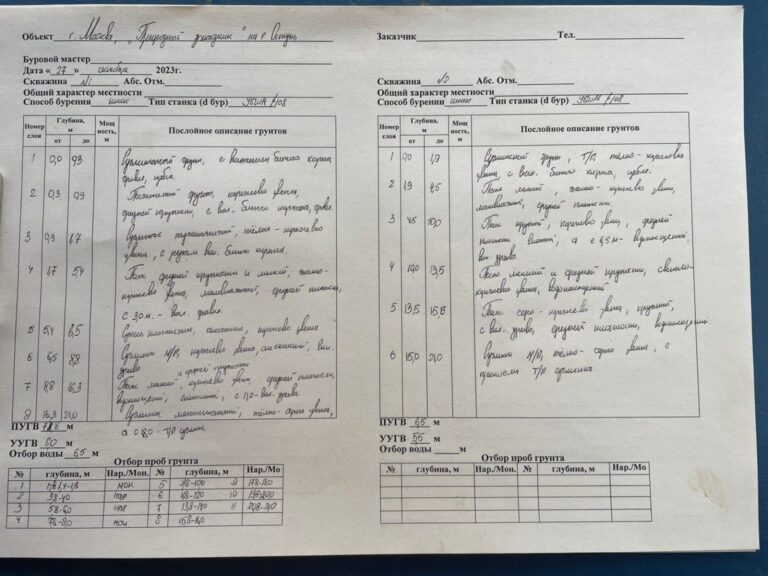 Объект г. Москва, "Природный заказник" на р. Сетунь
Буровой мастер
Дата « 27 » октября 2023г.
Скважина №1 Абс. Отм.
Общий характер местности
Способ бурения шнек Тип станка (d бур) УБШМ 108
Номер слоя Глубина, м от до Мощность, м Послойное описание грунтов
1 0,0 0,3
2 0,3 0,9 Песчаный грунт, коричнево цвета,
средней крупности, с вкл. битого кирпича,
3 0,9 1,7 Суглинок тугопластич, тёмно-коричнево
цвета, с редким вкл. битого кирпича.
4 1,7 5,4 Песок средней крупности и мелкий, темно-
коричнево цвета, маловлажный, средней плотности,
с 3,0 м - вкл. гравия.
5 5,4 6,5 коричнево цвета
6 6,5 8,8 Суглинок М/П, коричнево цвета, вкл.
7 8,8 16,3 Песок мелкий коричнево цвета, средней плотности,
8 16,3 21,0 Суглинок тёмно-серого цвета,
а с 18,0 - Т/П суглинок
ПУГВ м
УУГВ 6,0 м
Отбор воды 6,5 м
Отбор проб грунта
№ глубина, м Нар./Мон. № глубина, м Нар./Мо
1 мон 5 9,8-10,0 9 17,8-18,0
2 3,8-4,0 нар 6 11,8-12,0 10 19,8-20,0
3 5,8-6,0 нар 7 13,8-14,0 11 20,8-21,0
4 7,8-8,0 мон 8 15,8-16,0
Заказчик Тел.
Скважина №2 Абс. Отм.
Общий характер местности
Способ бурения шнек Тип станка (d бур) УБШМ 108
Номер слоя Глубина, м от до Мощность, м Послойное описание грунтов
1 0,0 1,9 грунт, Т/П, тёмно-коричневого
цвета, с вкл. битого кирпича, щебня.
2 1,9 4,5 Песок мелкий, темно-коричнево цвета,
маловлажный, средней плотности.
3 4,5 10,0 Песок крупный, коричнево цвета, средней
плотности, влажный, а с 6,5 м - водонасыщенный,
вкл. гравия.
4 10,0 13,5 Песок мелкий и средней крупности, светло-
коричнево цвета, водонасыщенный
5 13,5 Песок серо-коричнево цвета, крупный,
с вкл. гравия, средней плотности, водонасыщенный
6 15,0 21,0 Суглинок М/П, тёмно-серого цвета, с
Т/П суглинка.
ПУГВ 6,5 м
УУГВ 5,5 м
Отбор воды м
Отбор проб грунта
№ глубина, м Нар./Мон. № глубина, м Нар./Мо